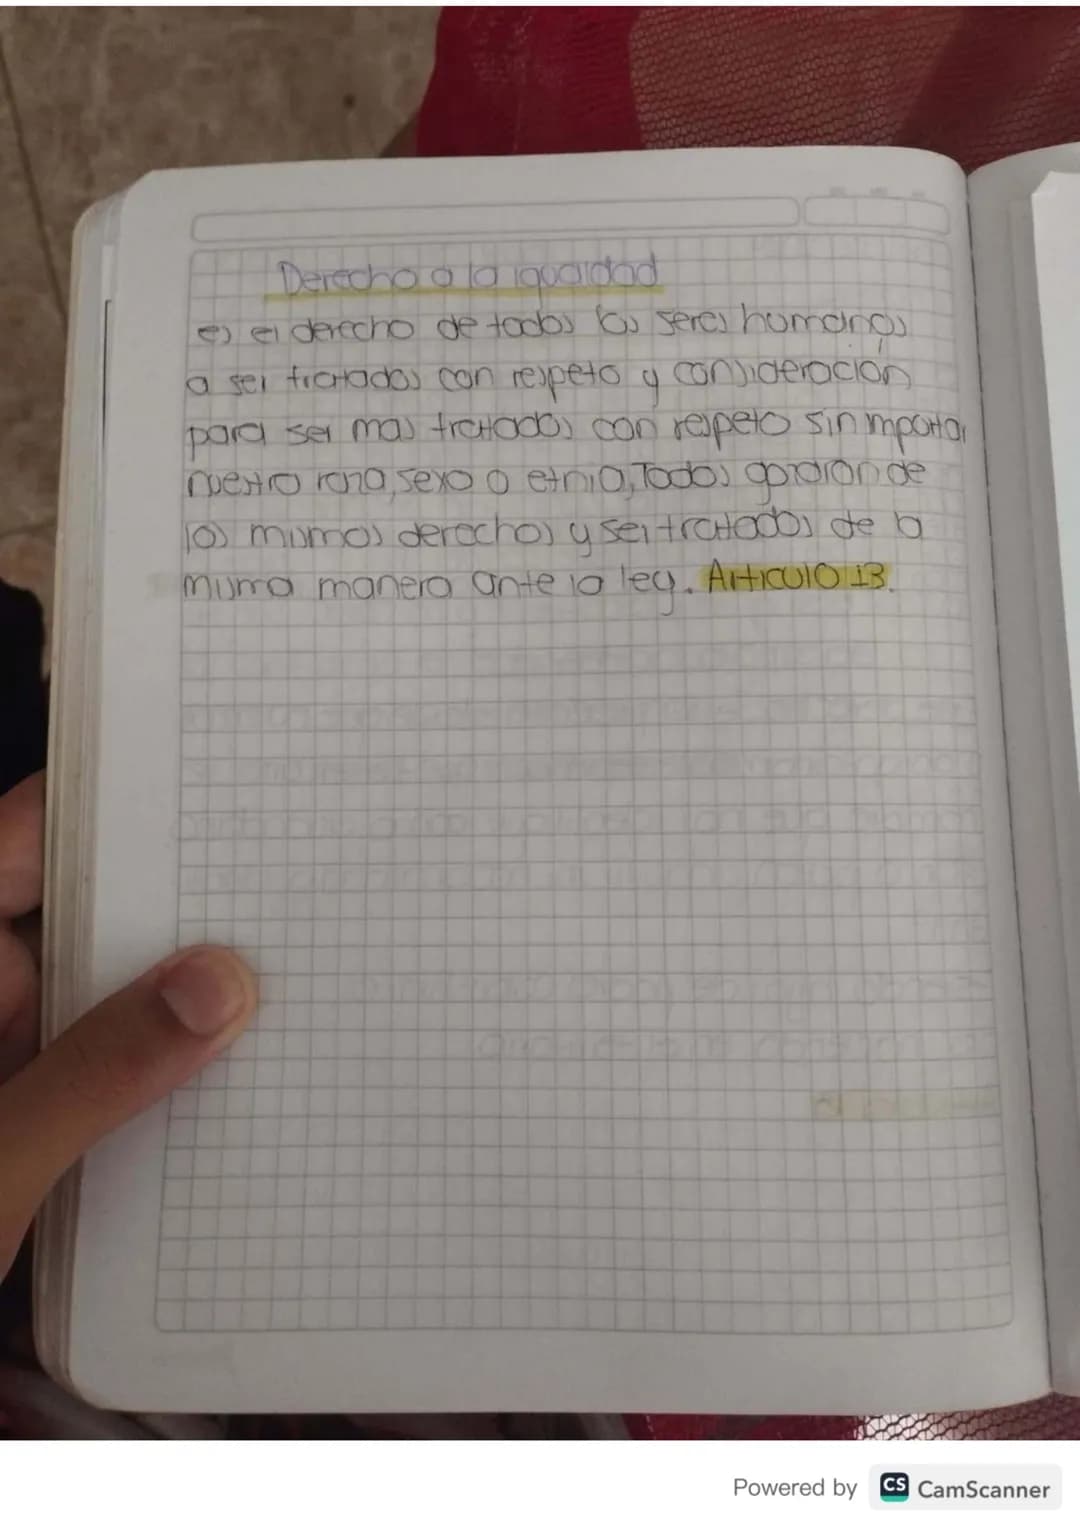 Derecho a la igualdad
es el derecho de todos los seres humanos
a ser tratados con respeto y consideración
para ser mas tratados con respeto sin importar
nuestro raza, sexo o etnia, Todos gozaran de
los mismos derechos y ser tratados de la
misma manera ante la ley. Articulo 13.
Powered by CS CamScanner